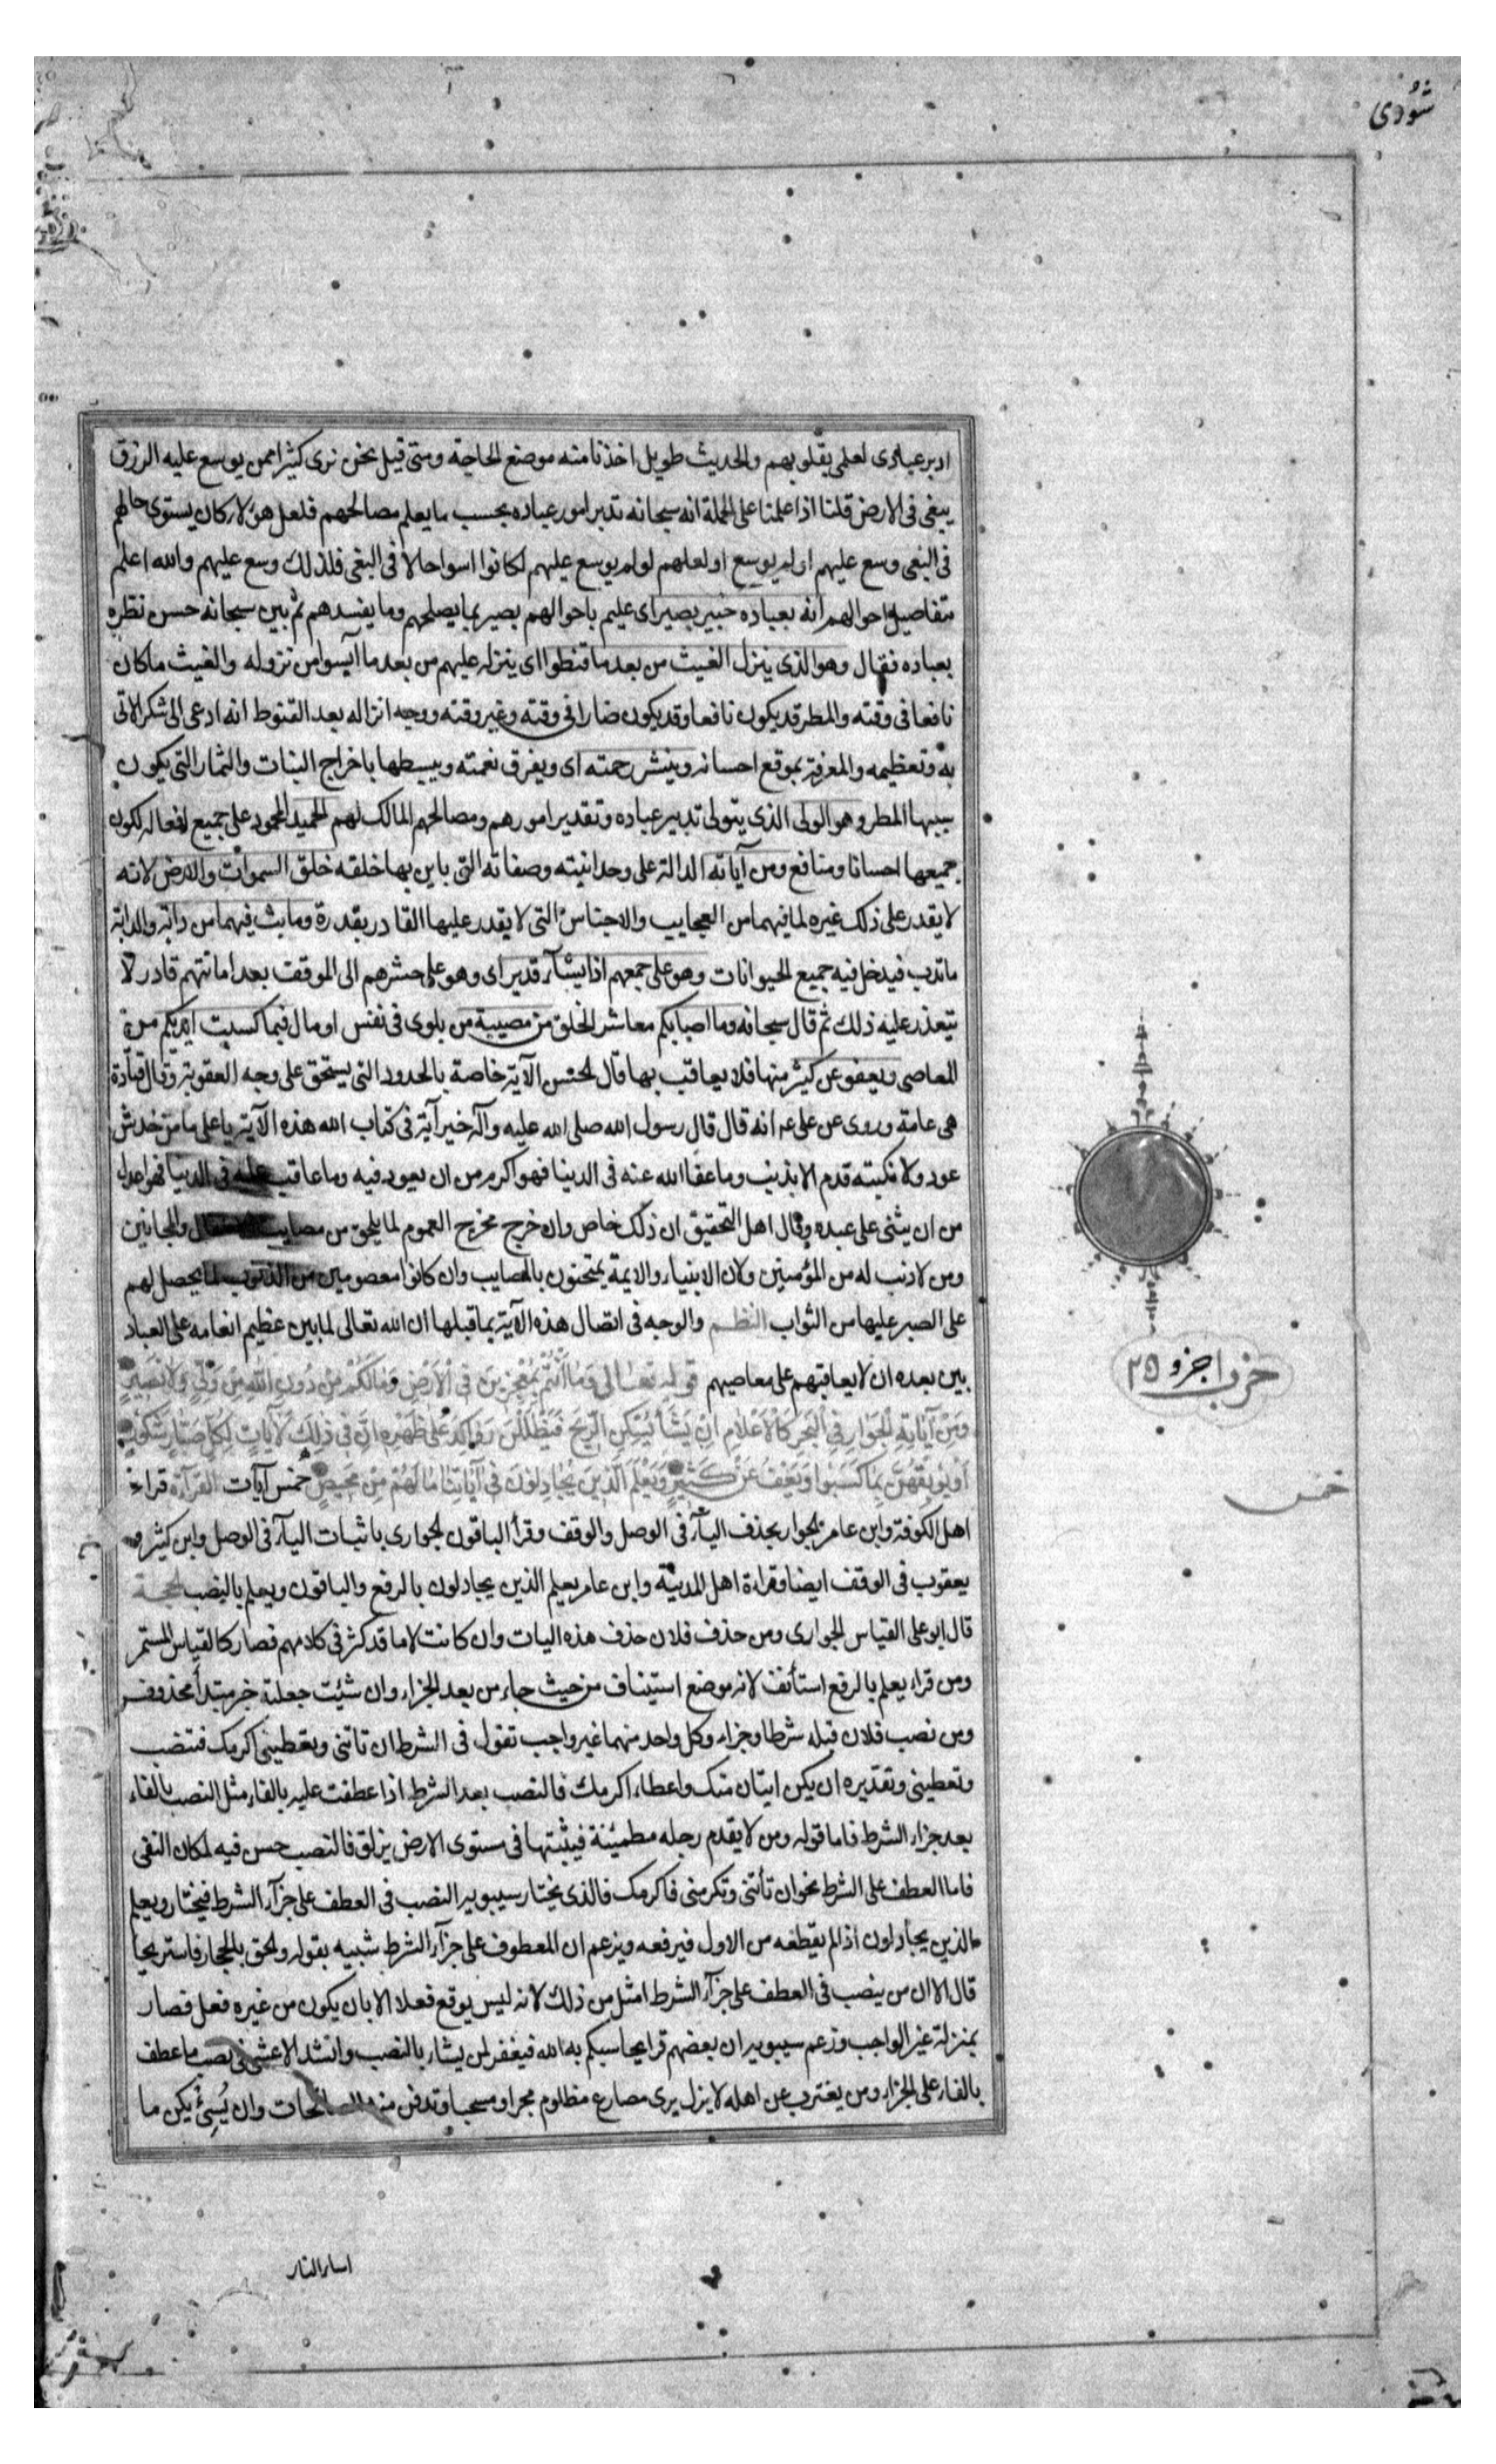 شورى
ادبر عبادى لعلمى بقلوبهم والحديث طويل اخذنا منه موضع الحاجة ومتى قيل نحن نرى كثيرا ممن يوسع عليه الرزق
يبغى فى الارض قلنا اذا علمنا على الجملة انه سبحانه تدبر امور عباده بحسب ما يعلم مصالحهم فلعل هؤلاء كان يستوى حالهم
فى البغى وسع عليهم او لم يوسع او لعلهم لو لم يوسع عليهم لكانوا اسوا حالا فى البغى فلذلك وسع عليهم والله اعلم
بتفاصيل احوالهم انه بعباده خبير بصير اى عليم باحوالهم بصير بما يصلحهم وما يفسدهم ثم بين سبحانه حسن نظره
بعباده فقال وهو الذى ينزل الغيث من بعد ما قنطوا اى ينزله عليهم من بعد ما آيسوا من نزوله والغيث ما كان
نافعا فى وقته والمطر قد يكون نافعا وقد يكون ضارا فى وقته وغير وقته ووجه انزاله بعد القنوط انه ادعى الى شكر الاتى
به وتعظيمه والمعرفة بموقع احسانه وينشر رحمته اى ويفرق نعمته ويبسطها باخراج النبات والثمار التى يكون
سببها المطر وهو الولى الذى يتولى تدبير عباده وتقدير امورهم ومصالحهم المالك لهم الحميد المحمود على جميع افعاله لكون
جميعها احسانا ومنافع ومن آياته الدالة على وحدانيته وصفاته التى باين بها خلقه خلق السموات والارض لانه
لا يقدر على ذلك غيره لما فيهما من العجايب والاجناس التى لا يقدر عليها القادر بقدرة وما بث فيهما من دابة والدابة
ما تدب فيدخل فيه جميع الحيوانات وهو على جمعهم اذا يشآء قدير اى وهو على حشرهم الى الموقف بعد اماتتهم قادر لا
يتعذر عليه ذلك ثم قال سبحانه وما اصابكم معاشر الخلق من مصيبة من بلوى فى نفس او مال فبما كسبت ايديكم من
المعاصى ويعفو عن كثير منها فلا يعاقب بها قال الحسن الآية خاصة بالحدود التى يستحق على وجه العقوبة وقال قتادة
هى عامة وروى عن على عه انه قال قال رسول الله صلى الله عليه وآله خير آية فى كتاب الله هذه الآية يا على ما من خدش
عود ولا نكبته قدم الا بذنب وما عفا الله عنه فى الدنيا فهو اكرم من ان يعود فيه وما عاقب عليه فى الدنيا فهو اعدل
من ان يثنى على عبده وقال اهل التحقيق ان ذلك خاص وان خرج مخرج العموم لما يلحق من مصايب والمجانين
ومن لا ذنب له من المؤمنين ولان الانبياء والايمة يمتحنون بالمصايب وان كانوا معصومين من الذنوب لما يحصل لهم
على الصبر عليها من الثواب النظم والوجه فى اتصال هذه الآية بما قبلها ان الله تعالى لما بين عظيم انعامه على العباد
بين بعده ان لا يعاقبهم على معاصيهم قوله تعالى وَمَا أَنْتُمْ بِمُعْجِزِينَ فِى الْأَرْضِ وَمَا لَكُمْ مِنْ دُونِ اللَّهِ مِنْ وَلِىٍّ وَلَا نَصِيرٍ
وَمِنْ آيَاتِهِ الْجَوَارِ فِى الْبَحْرِ كَالْأَعْلَامِ إِنْ يَشَأْ يُسْكِنِ الرِّيحَ فَيَظْلَلْنَ رَوَاكِدَ عَلَى ظَهْرِهِ إِنَّ فِى ذَلِكَ لَآيَاتٍ لِكُلِّ صَبَّارٍ شَكُورٍ
أَوْ يُوبِقْهُنَّ بِمَا كَسَبُوا وَيَعْفُ عَنْ كَثِيرٍ وَيَعْلَمَ الَّذِينَ يُجَادِلُونَ فِى آيَاتِنَا مَا لَهُمْ مِنْ مَحِيصٍ خمس آيات القرآءة قراء
اهل الكوفة وابن عامر الجوار بحذف اليآء فى الوصل والوقف وقرأ الباقون الجوارى باثبات اليآء فى الوصل وابن كثير و
يعقوب فى الوقف ايضا وقراءة اهل المدينة وابن عامر يعلم الذين يجادلون بالرفع والباقون ويعلم بالنصب الحجة
قال ابو على القياس الجوارى ومن حذف فلان حذف هذه اليات وان كانت لاما قد كثر فى كلامهم فصار كالقياس المستمر
ومن قراء يعلم بالرفع استأنف لانه موضع استيناف من حيث جاء من بعد الجزاء وان شئت جعلته خبر مبتدأ محذوف
ومن نصب فلان قبله شرطا وجزاء وكل واحد منهما غير واجب تقول فى الشرط ان تاتنى وتعطينى اكرمك فتنصب
وتعطينى وتقديره ان يكن ايتان منك واعطاء اكرمك فالنصب بعد الشرط اذا عطفت عليه بالفاء مثل النصب بالفاء
بعد جزاء الشرط فاما قوله ومن لا يقدم رجله مطمئنة فيثبتها فى مستوى الارض يزلق فالنصب حسن فيه لمكان النفى
فاما العطف على الشرط نحو ان تأتنى وتكرمنى فاكرمك فالذى يختار سيبويه النصب فى العطف على جزآء الشرط فيختار ويعلم
الذين يجادلون اذا لم يقطعه من الاول فيرفعه ويزعم ان المعطوف على جزآء الشرط شبيه بقوله والحق بالحجاز فاستريحا
قال الا ان من ينصب فى العطف على جزآء الشرط امثل من ذلك لانه ليس يوقع فعلا الا بان يكون من غيره فعل فصار
بمنزلة غير الواجب وزعم سيبويه ان بعضهم قرا يحاسبكم به الله فيغفر لمن يشاء بالنصب وانشد الاعشى فى نصب ما عطف
بالفاء على الجزاء ومن يغترب عن اهله لا يزل يرى مصارع مظلوم مجرا ومسحبا وتدفن منه الصالحات وان يُسِئْ يكن ما
حزب اجزو ٢٥
خمس
اسار النار